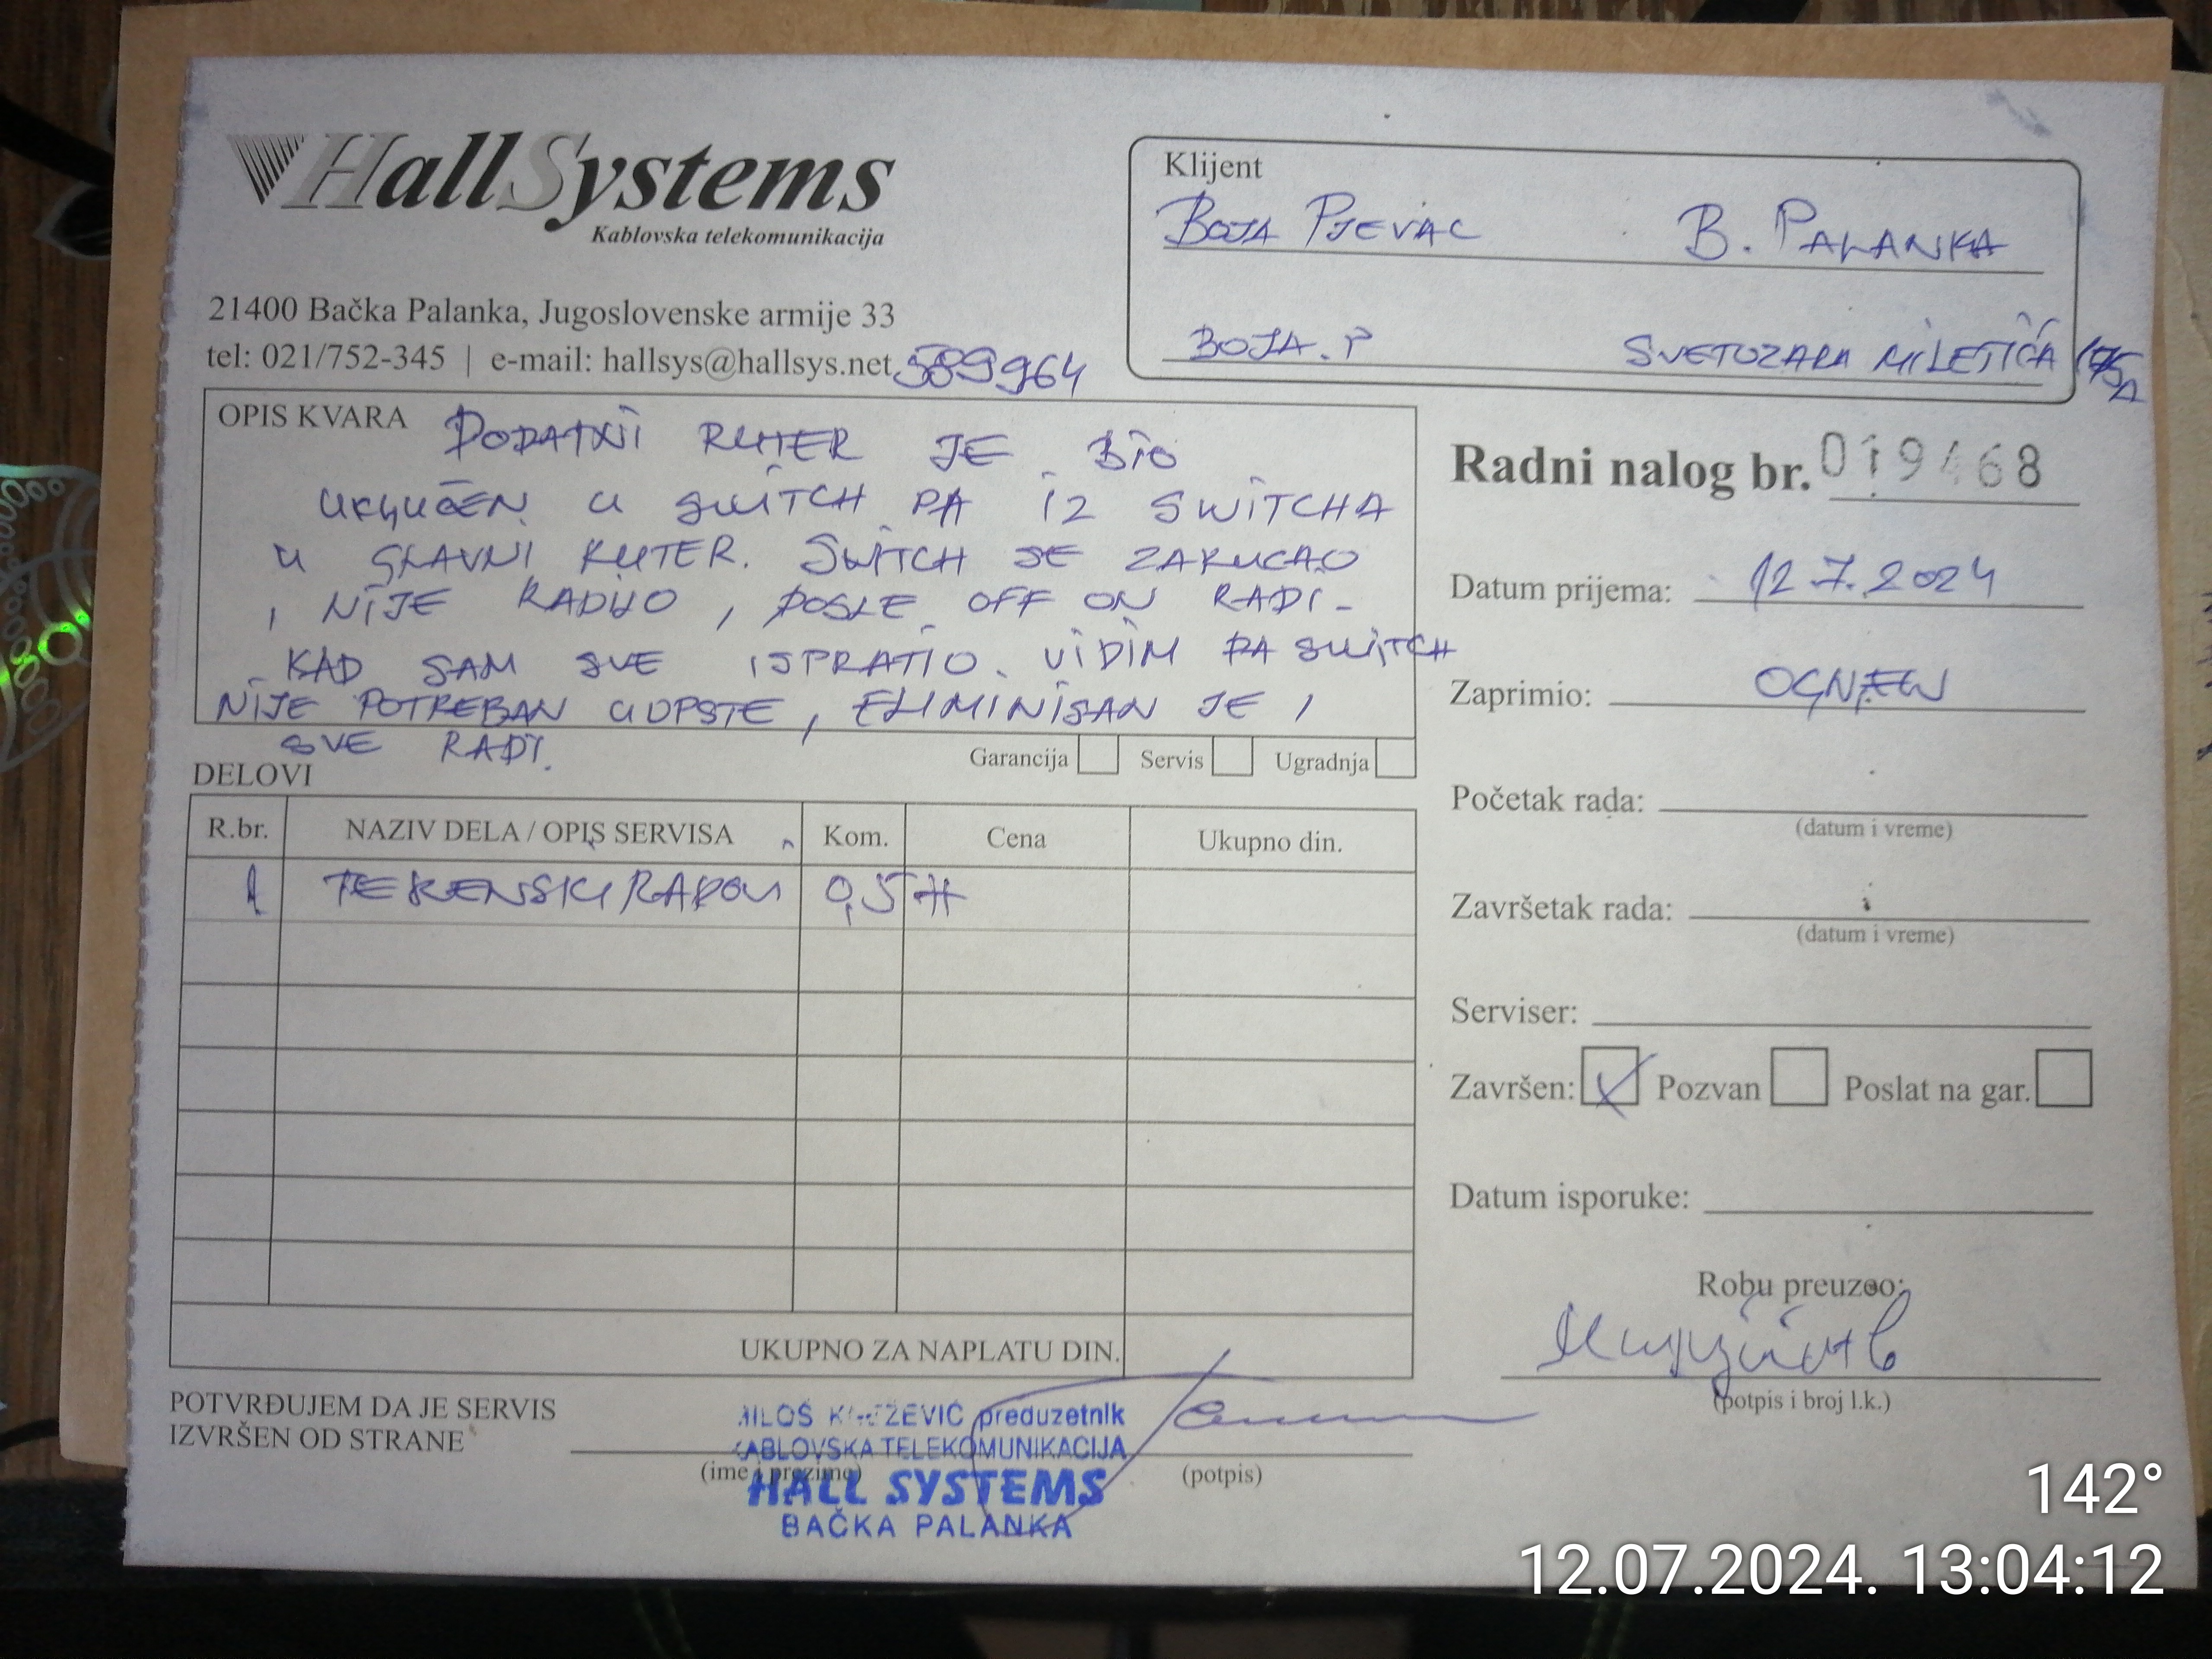 HallSystems
Kablovska telekomunikacija
21400 Bačka Palanka, Jugoslovenske armije 33
tel: 021/752-345 | e-mail: hallsys@hallsys.net 589964
Klijent
BOJA PJEVAC B. PALANKA
BOJA.P SVETOZARA MILETIĆA
OPIS KVARA DODATNI RUTER JE BIO
UKLJUČEN U SWITCH PA IZ SWITCHA
U GLAVNI RUTER. SWITCH SE ZAKUCAO
I NIJE RADIO, POSLE OFF ON RADI.
KAD SAM SVE ISPRATIO VIDIM DA SWITCH
NIJE POTREBAN UOPSTE, ELIMINISAN JE I
SVE RADI.
Garancija Servis Ugradnja
Radni nalog br. 019468
Datum prijema: 12.7.2024
Zaprimio: OGNJEN
Početak rada:
(datum i vreme)
Završetak rada:
(datum i vreme)
Serviser:
Završen: Pozvan Poslat na gar.
Datum isporuke:
Robu preuzeo:
(potpis i broj l.k.)
DELOVI
R.br. NAZIV DELA / OPIS SERVISA Kom. Cena Ukupno din.
1 TERENSKI RADOVI 0,5 H
UKUPNO ZA NAPLATU DIN.
POTVRĐUJEM DA JE SERVIS
IZVRŠEN OD STRANE
(ime i prezime) (potpis)
MILOŠ KNEŽEVIĆ preduzetnik
KABLOVSKA TELEKOMUNIKACIJA
HALL SYSTEMS
BAČKA PALANKA
142°
12.07.2024. 13:04:12